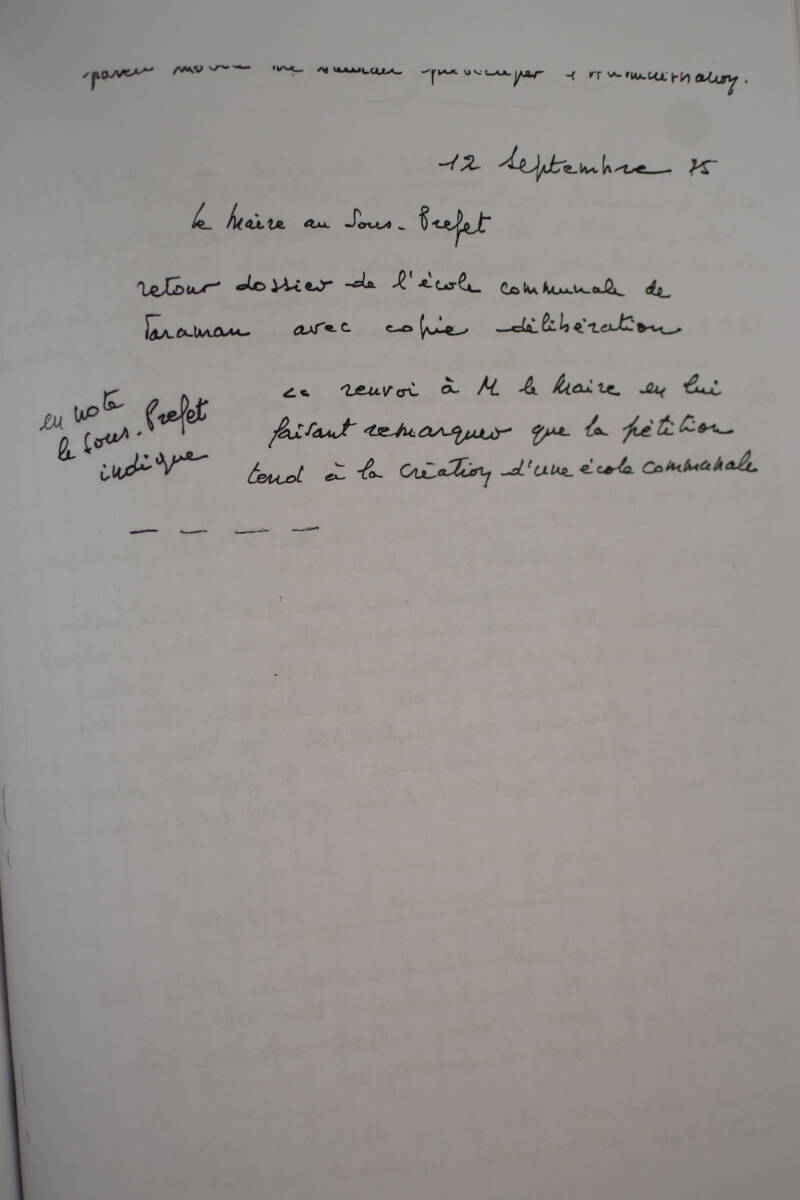 12 Septembre 75
le Maire au Sous-Prefet
retour dossier de l'école communale de
Taraman avec copie délibération
en note
le Sous-Prefet
indique
<< renvoi à M le Maire en lui
faisant remarquer que la pétition
tend à la création d'une école communale